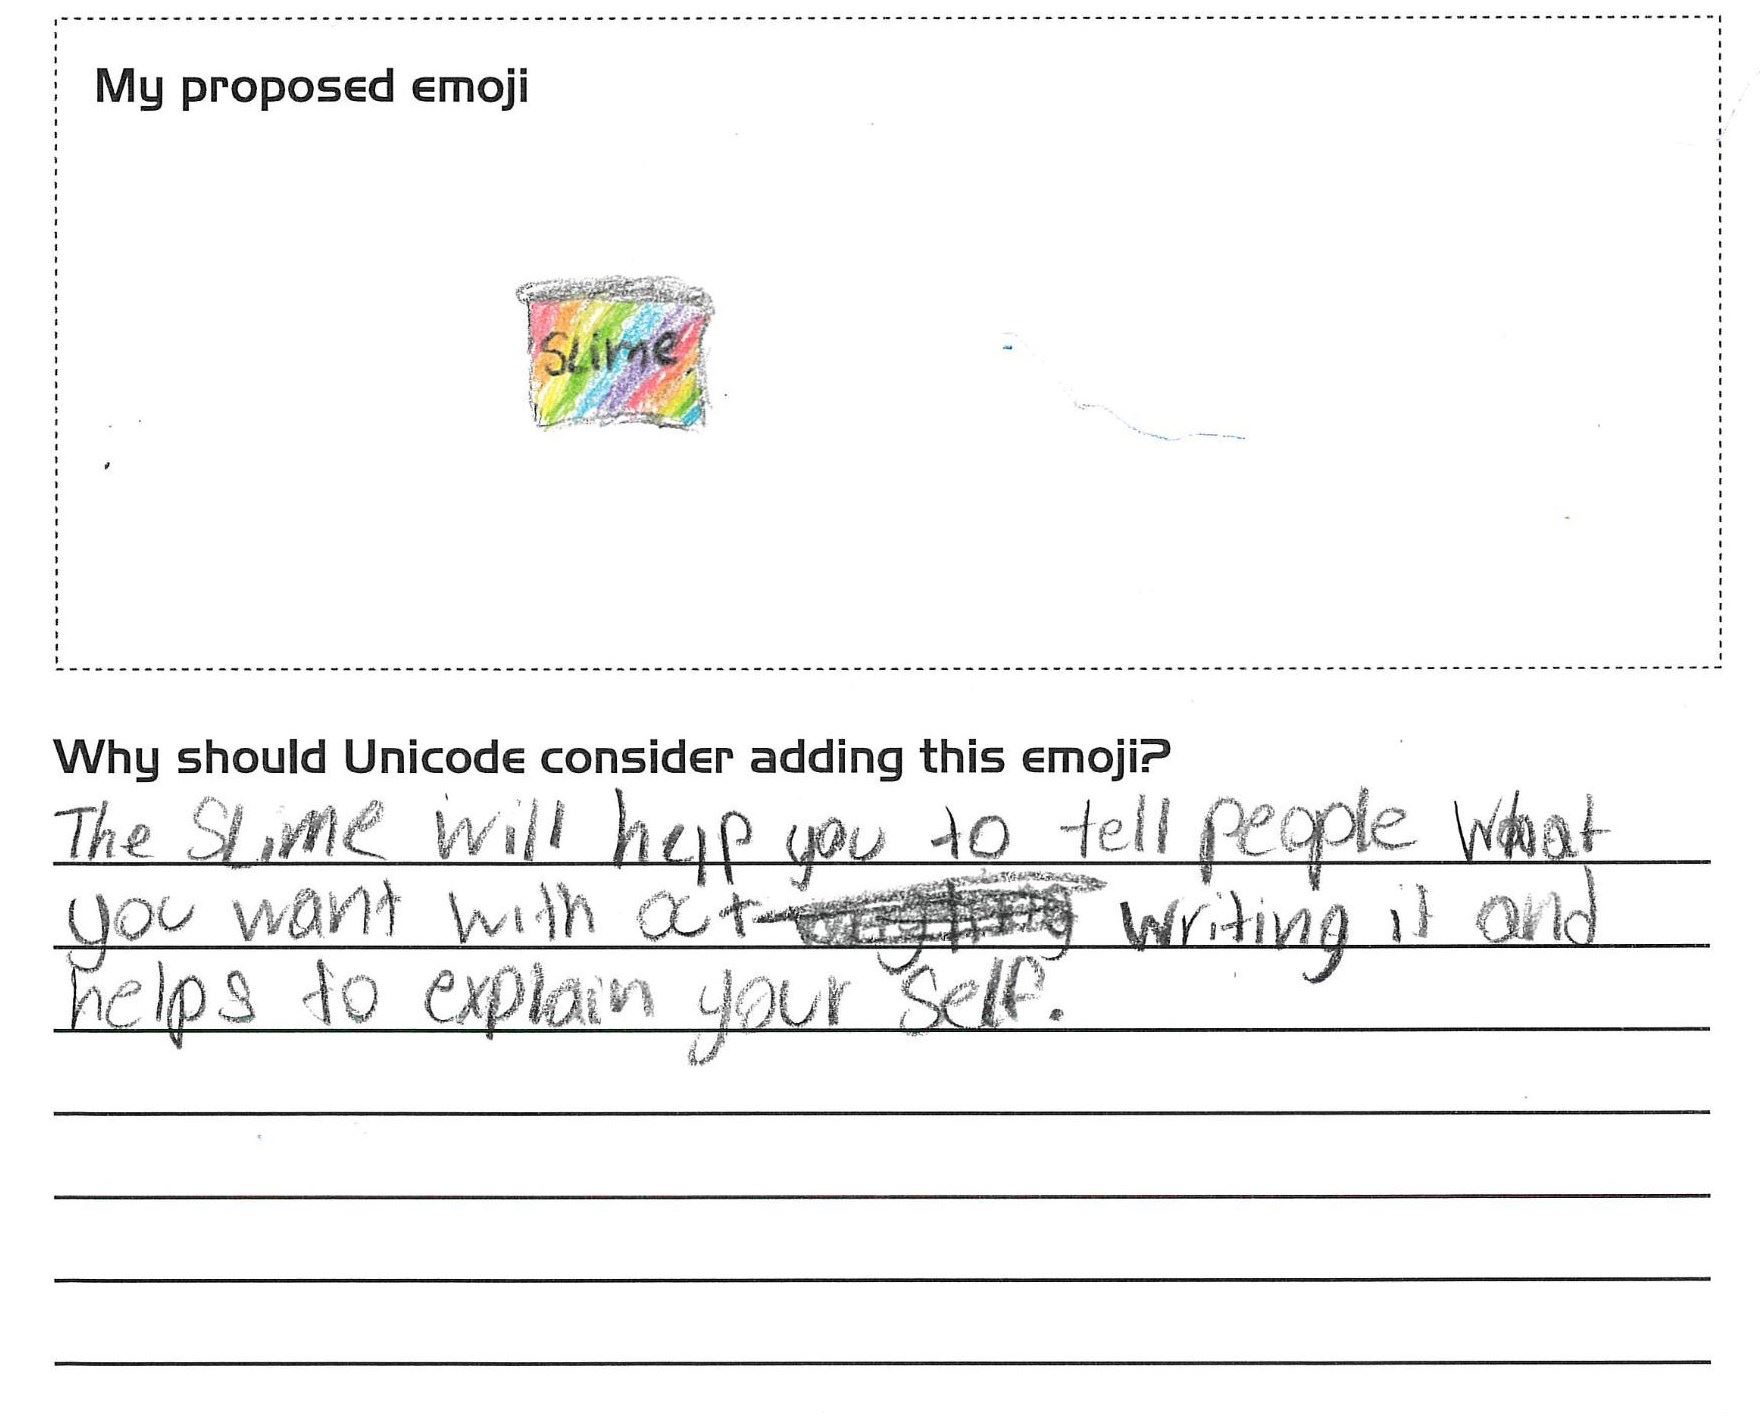 My proposed emoji
SLime
Why should Unicode consider adding this emoji?
The SLime will help you to tell people What
you want with at writing it and
helps to explain your self.